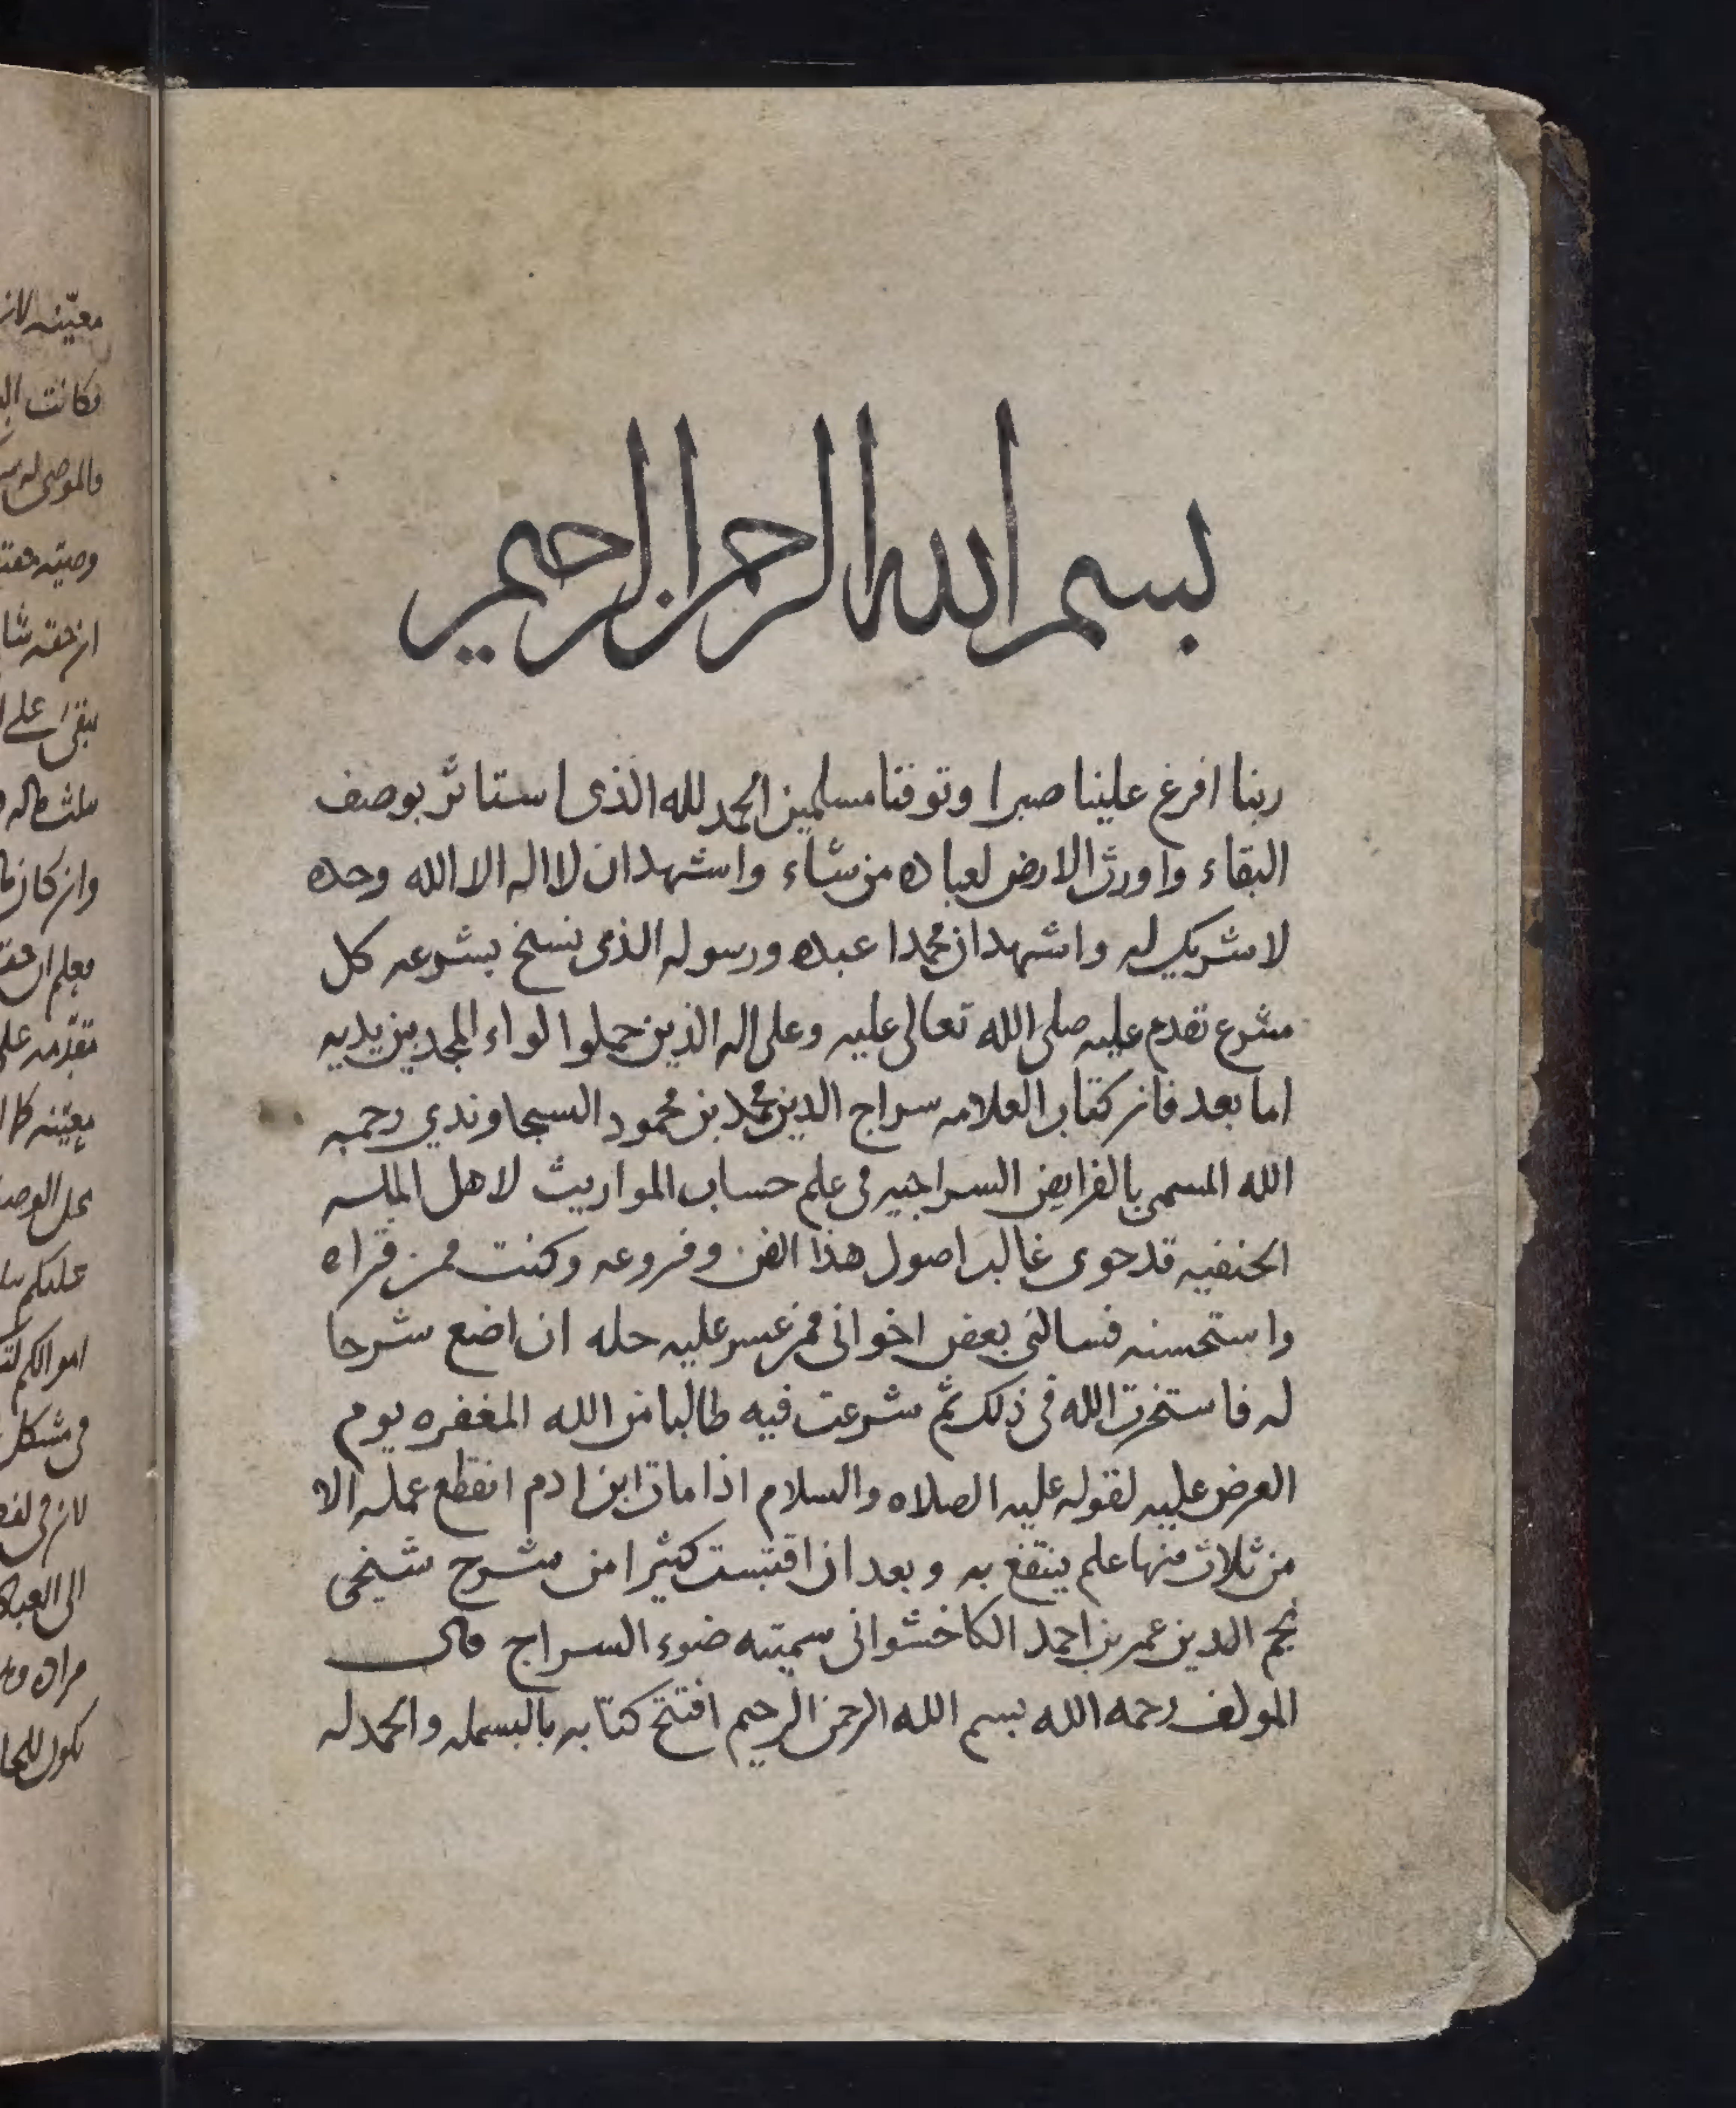 بسم الله الرحمن الرحيم
ربنا افرغ علينا صبرا وتوفنا مسلمين الحمد لله الذى استاثر بوصف
البقاء واورث الارض لعباده من شاء واشهد ان لا اله الا الله وحده
لا شريك له واشهد ان محمدا عبده ورسوله الذى نسخ بشرعه كل
شرع تقدم عليه صلى الله تعالى عليه وعلى اله الذين حملوا لواء المجد بين يديه
اما بعد فان كتاب العلامه سراج الدين محمد بن محمود السجاوندي رحمه
الله المسمى بالفرايض السراجيه فى علم حساب المواريث لاهل المله
الحنفيه قد حوى غالب اصول هذا الفن وفروعه وكنت ممن قراه
واستحسنه فسالنى بعض اخوانى ممن عسر عليه حله ان اضع شرحا
له فاستخرت الله فى ذلك ثم شرعت فيه طالبا من الله المغفره يوم
العرض عليه لقوله عليه الصلاه والسلام اذا مات ابن ادم انقطع عمله الا
من ثلاث منها علم ينتفع به وبعد ان اقتبست كثيرا من شرح شيخى
نجم الدين عمر بن احمد الكاخشوانى سميته ضوء السراج قال
المولف رحمه الله بسم الله الرحمن الرحيم افتتح كتابه بالبسمله والحمد له
معينه لان
فكانت
والموصى له
وصيته
ان حقه شا
يبقى على
ثلث ماله
وان كان
معلم ان حقه
تقدمه على
معينه كا
محل الوصيه
عليكم
اموالكم
فى مشكل
لان فى
الى العباد
مراده
يكون